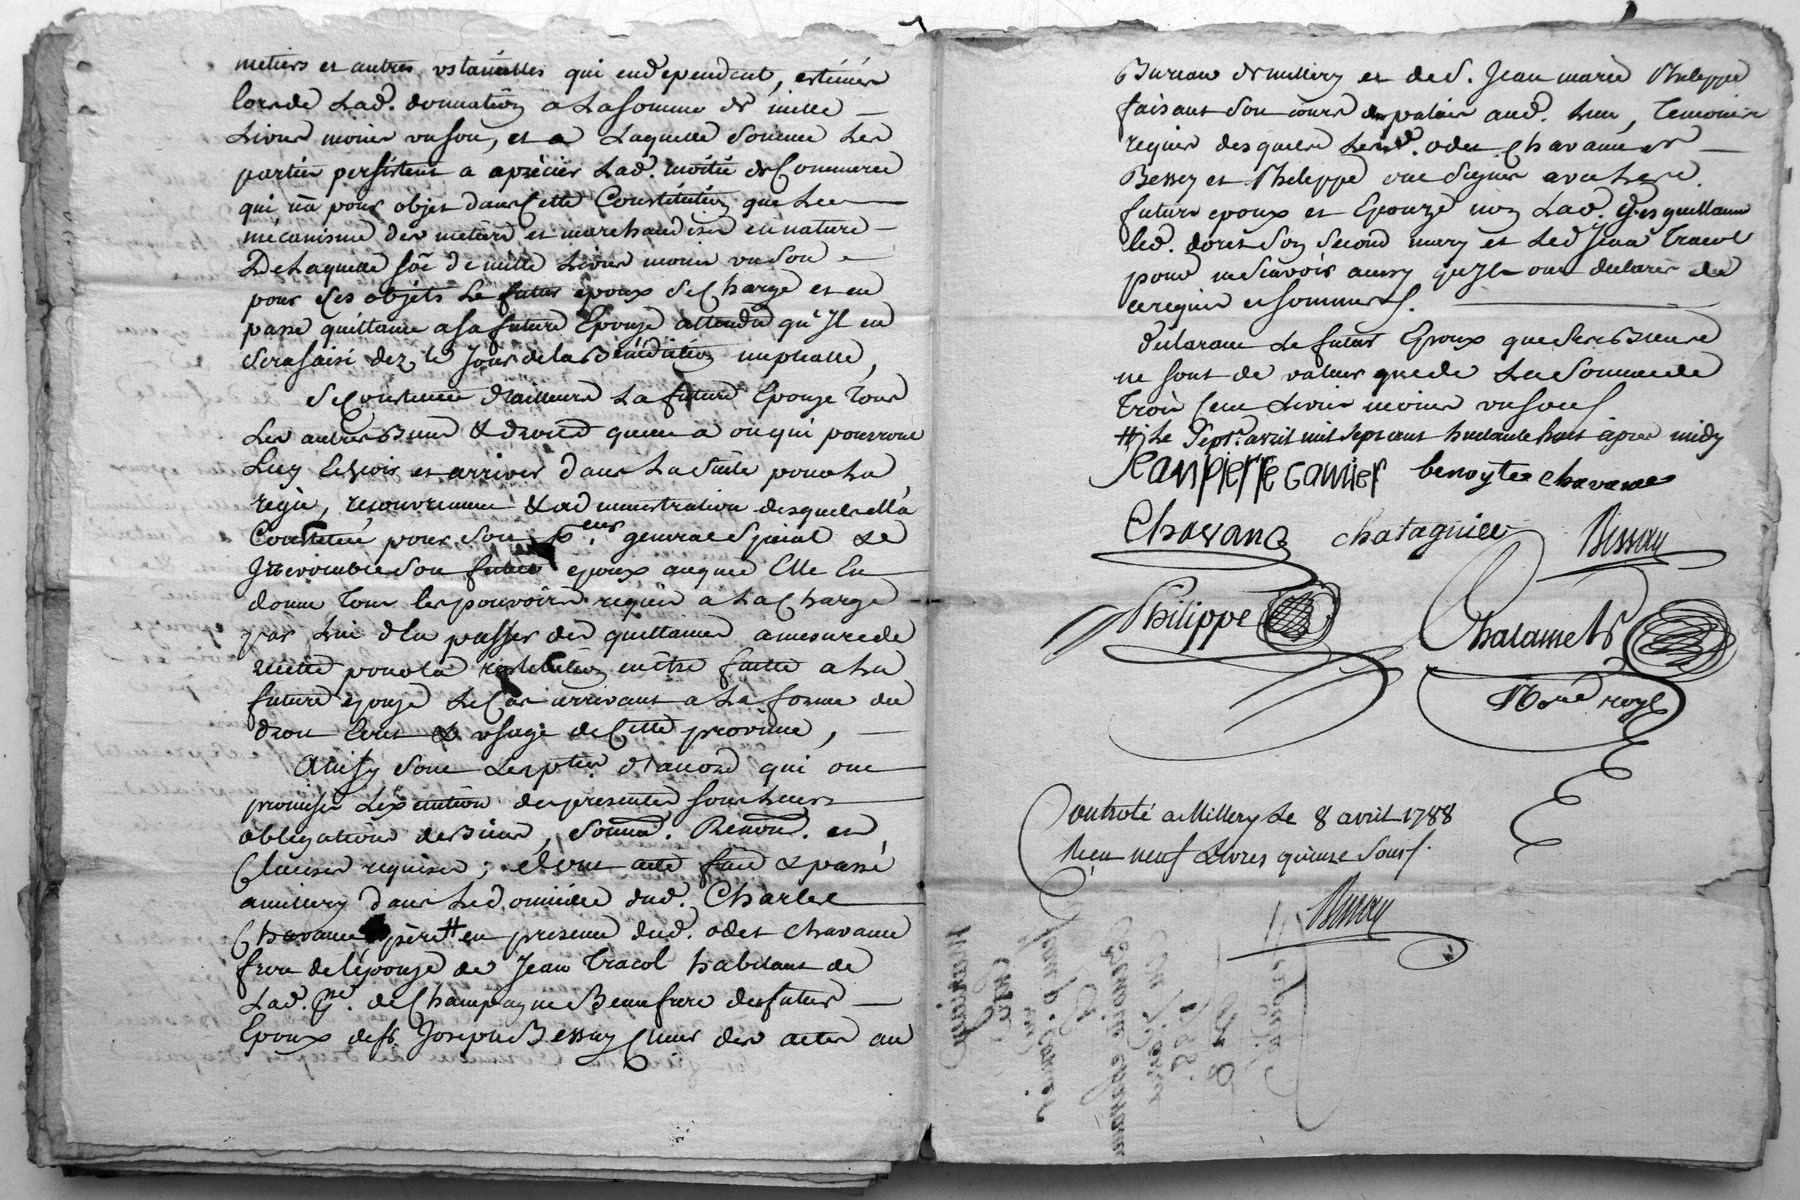 metiers et autres ustancilles qui endependent, estimés
lors de Lad. donnation a La somme de mille
Livres moins un sou, et a Laquelle somme Les
parties persistent a aprécier Lad. moitié de Commerce
qui n'a pour objet dans Cette Constitution que Le
mécanisme des métiers et marchandises en nature
De Laquelle sôe de mille Livres moins un sou
pour ces objets Le futur epoux se Charge et en
passe quittance a sa future Epouze attendu qu'Il en
sera saisi dez le Jour de la Bénédiction nuptialle,
Se Constitue d'ailleurs La future Epouze Tous
Les autres Biens & droits quelle a ou qui pourront
Luy Echoir et arriver dans La Suite pour La
regie, recouvrement & administration desquels Ella
Constitué pour son p.eur general Special &
Irrevocable son futur epoux auquel Elle En
donne Tous les pouvoirs requis a La Charge
par Lui d'En passer des quittances a mesure de
recette pour la restitution m'être faitte a La
future epouze Le Cas arrivant a La forme du
droit Ecrit & usage de Cette province,
Ainsy sont Les pties d'accord qui ont
promises L'exécution des presentes sous Leurs
obligations de Biens, soumd. Renond. et
Clauses requises; d'ont acte fait & passé
a millery dans Le domicile dud. Charles
Chavanne père # en presence dud. odet chavanne
frere de l'épouze de Jean Tracol habitant de
Lad. de Champagne Beaufrere du futur
Epoux de Sr. Joseph Bessay Cleur des actes au
Bureau de millery et de S. Jean marie Philippe
faisant son cours de palais aud. Lieu, Temoins
requis desquels Lesd. odet Chavanne
Bessey et Philippe ont Signés avec Lesd.
futurs epoux et Epouze non Lad.
led. doret son second mary et Led. Jean Tracol
pour ne scavoir aussy qu'Ils ont declarés de
ce requis et sommés.
déclarant Le futur Epoux que ses Biens
ne sont de valeur que de La somme de
Trois Cent Livres moins un sou
# Le Sept.e avril mil sept cent huitante huit après midy
Jean pierre Garnier benoyte chavanes
Chavane chatagnier Bissay
Philippe Chalamel
N.re royl
Controlé a Millery Le 8 avril 1788
Reçu neuf Livres quinze Sous.
Bissay